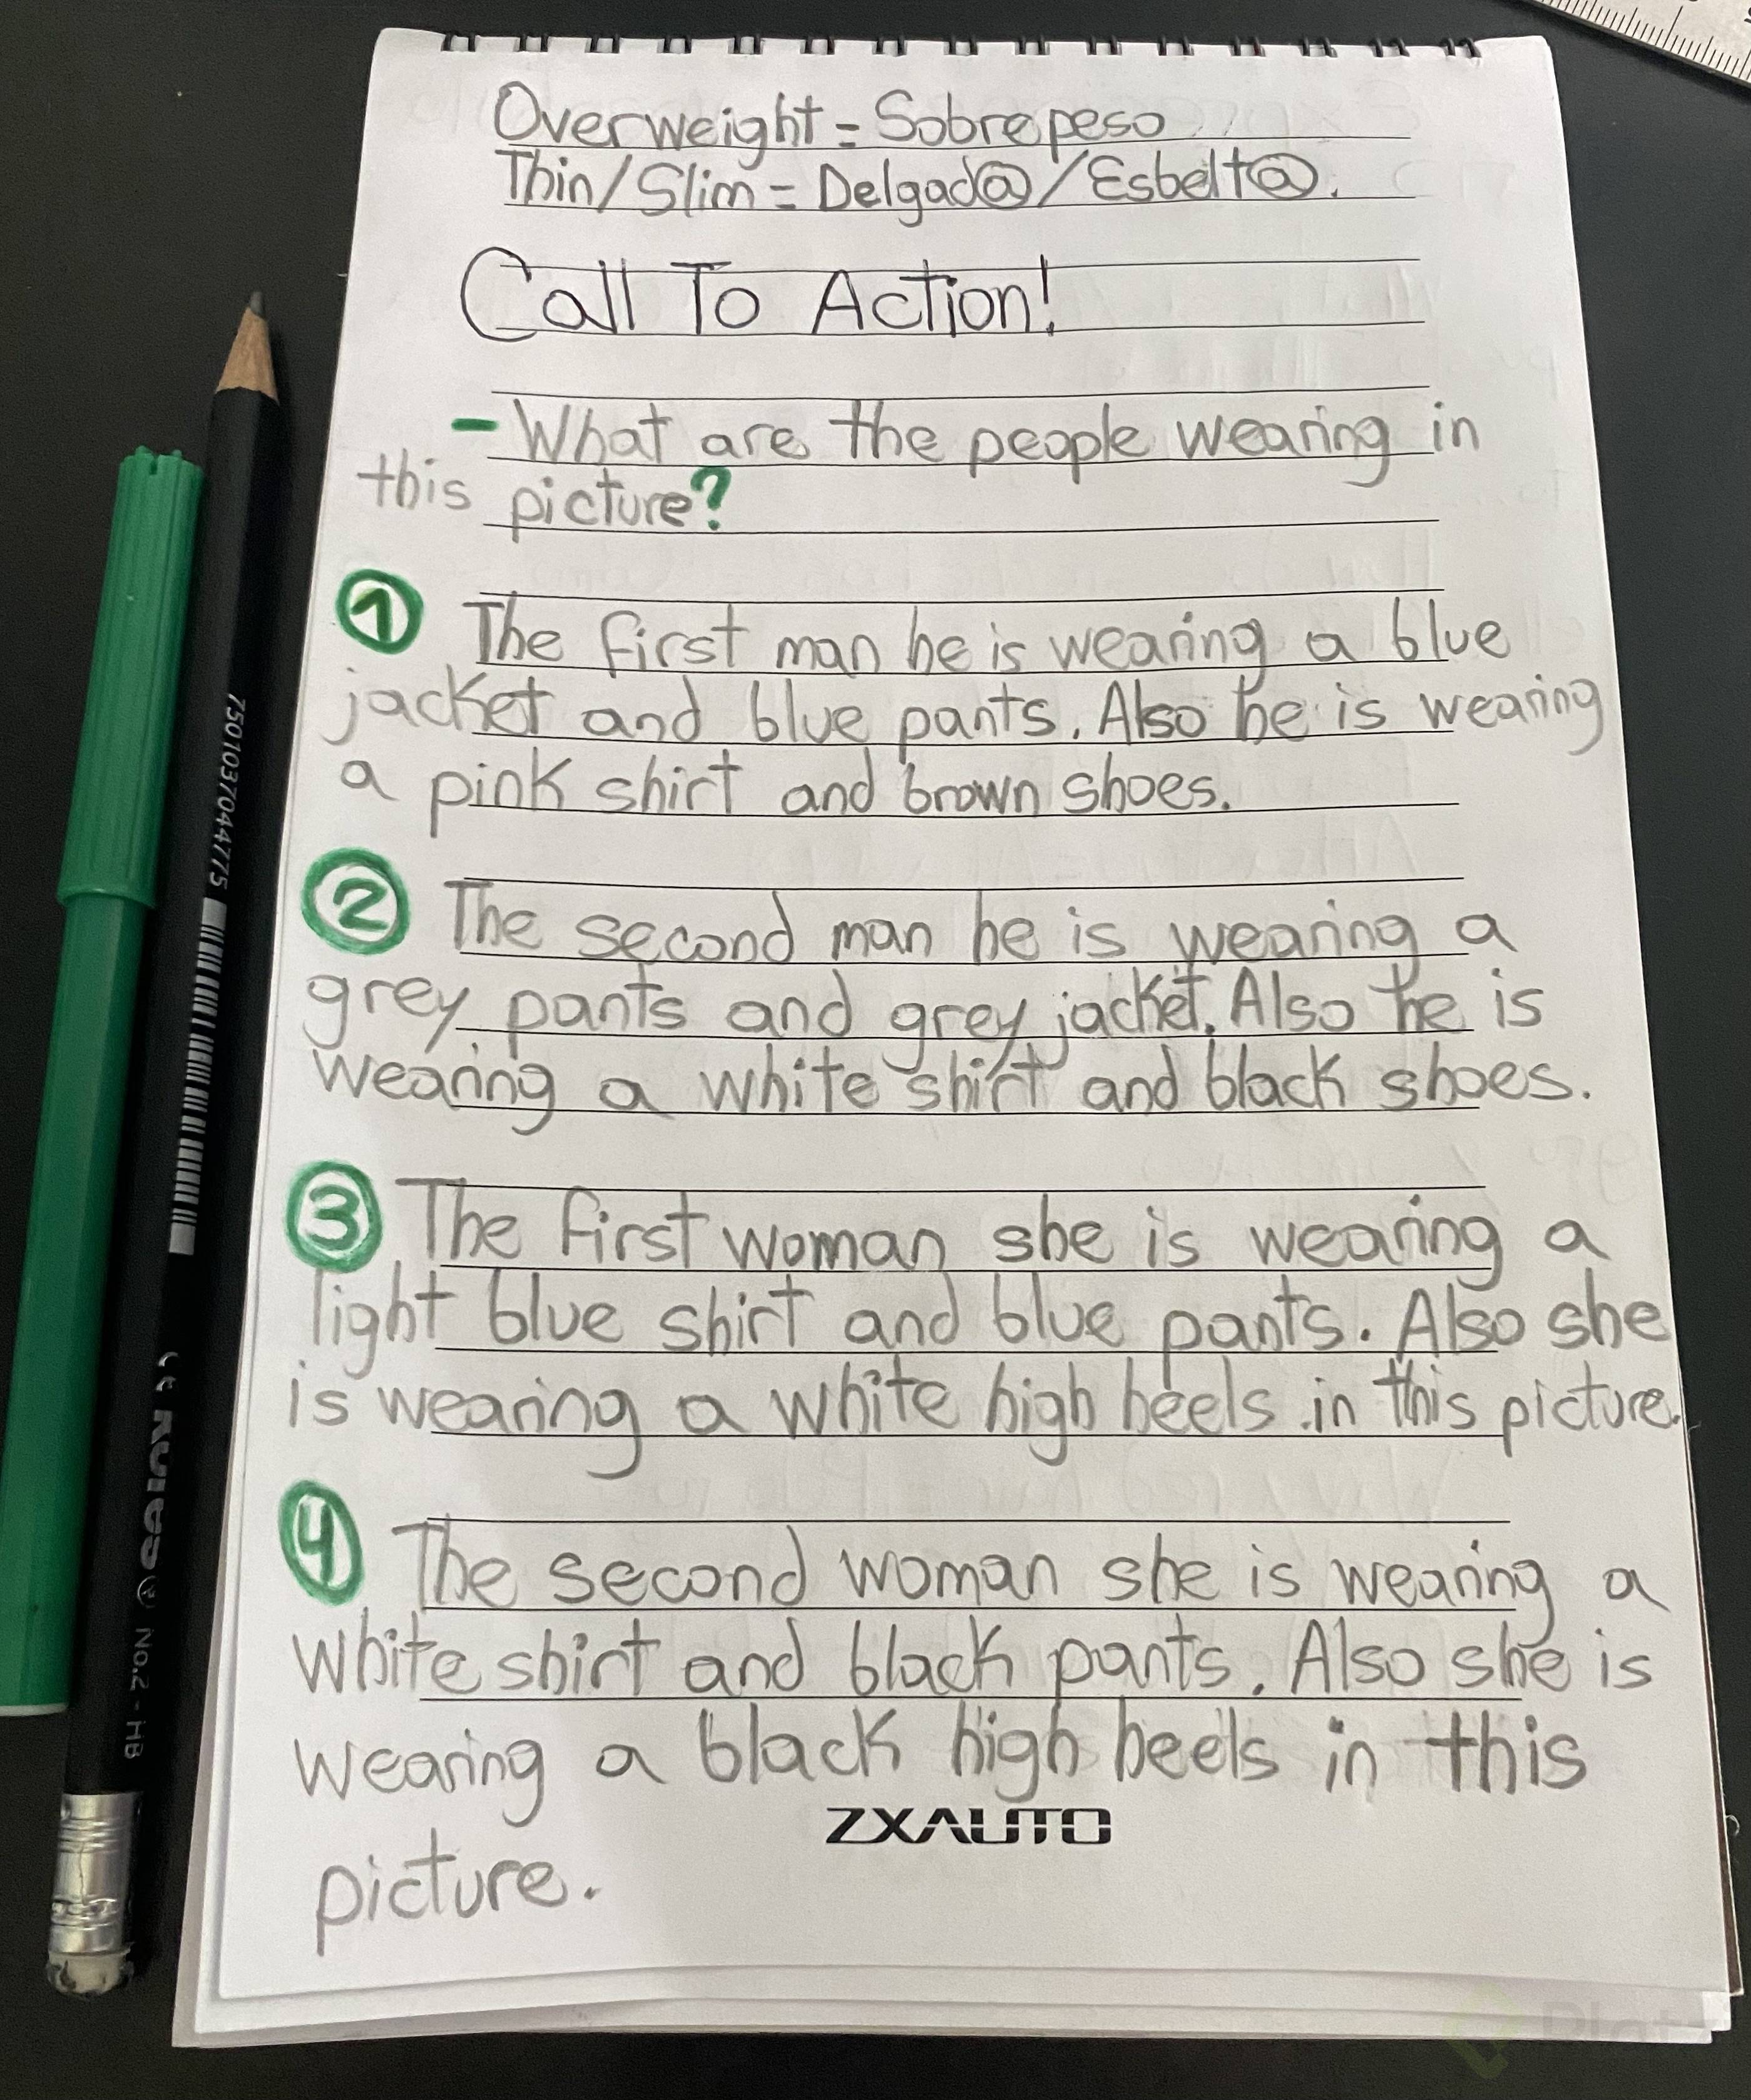 Overweight = Sobrepeso
Thin/Slim = Delgad@/Esbelt@.
Call To Action!
- What are the people wearing in
this picture?
1 The first man he is wearing a blue
jacket and blue pants. Also he is wearing
a pink shirt and brown shoes.
2 The second man he is wearing a
grey pants and grey jacket. Also he is
wearing a white shirt and black shoes.
3 The first woman she is wearing a
light blue shirt and blue pants. Also she
is wearing a white high heels in this picture.
4 The second woman she is wearing a
white shirt and black pants. Also she is
wearing a black high heels in this
ZXAUTO
picture.
7501037044775
No.2 - HB